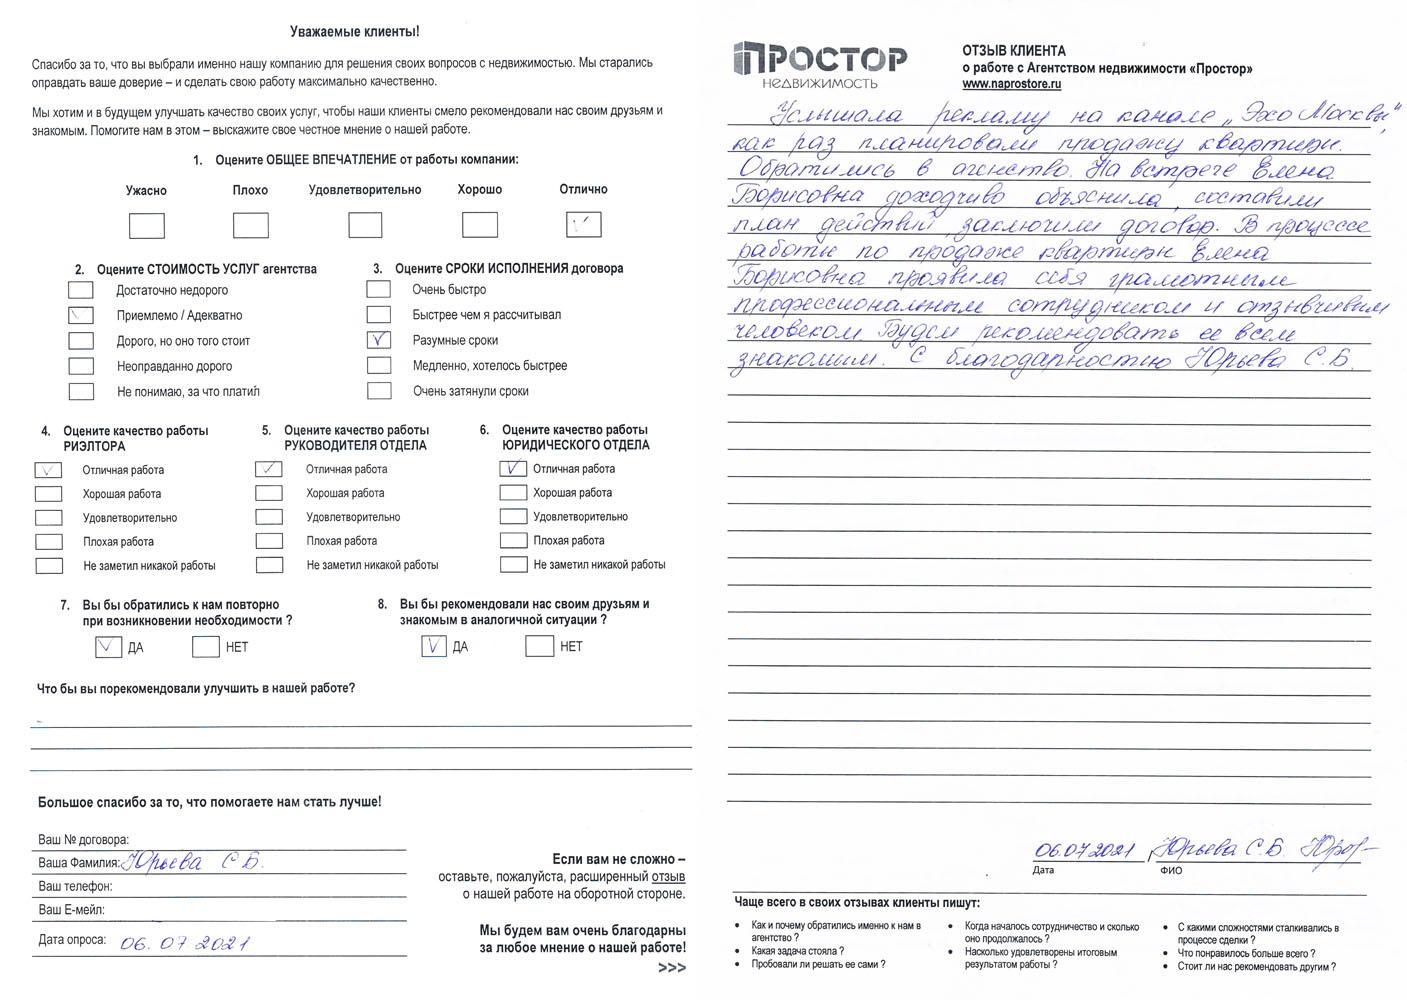 Уважаемые клиенты!
Спасибо за то, что вы выбрали именно нашу компанию для решения своих вопросов с недвижимостью. Мы старались
оправдать ваше доверие – и сделать свою работу максимально качественно.
Мы хотим и в будущем улучшать качество своих услуг, чтобы наши клиенты смело рекомендовали нас своим друзьям и
знакомым. Помогите нам в этом – выскажите свое честное мнение о нашей работе.
1. Оцените ОБЩЕЕ ВПЕЧАТЛЕНИЕ от работы компании:
Ужасно Плохо Удовлетворительно Хорошо Отлично
2. Оцените СТОИМОСТЬ УСЛУГ агентства
Достаточно недорого
Приемлемо / Адекватно
Дорого, но оно того стоит
Неоправданно дорого
Не понимаю, за что платил
3. Оцените СРОКИ ИСПОЛНЕНИЯ договора
Очень быстро
Быстрее чем я рассчитывал
Разумные сроки
Медленно, хотелось быстрее
Очень затянули сроки
4. Оцените качество работы
РИЭЛТОРА
Отличная работа
Хорошая работа
Удовлетворительно
Плохая работа
Не заметил никакой работы
5. Оцените качество работы
РУКОВОДИТЕЛЯ ОТДЕЛА
Отличная работа
Хорошая работа
Удовлетворительно
Плохая работа
Не заметил никакой работы
6. Оцените качество работы
ЮРИДИЧЕСКОГО ОТДЕЛА
Отличная работа
Хорошая работа
Удовлетворительно
Плохая работа
Не заметил никакой работы
7. Вы бы обратились к нам повторно
при возникновении необходимости ?
ДА НЕТ
8. Вы бы рекомендовали нас своим друзьям и
знакомым в аналогичной ситуации ?
ДА НЕТ
Что бы вы порекомендовали улучшить в нашей работе?
Большое спасибо за то, что помогаете нам стать лучше!
Ваш № договора:
Ваша Фамилия: Юрьева С.Б.
Ваш телефон:
Ваш Е-мейл:
Дата опроса: 06.07 2021
Если вам не сложно –
оставьте, пожалуйста, расширенный отзыв
о нашей работе на оборотной стороне.
Мы будем вам очень благодарны
за любое мнение о нашей работе!
>>>
ПРОСТОР
НЕДВИЖИМОСТЬ
ОТЗЫВ КЛИЕНТА
о работе с Агентством недвижимости «Простор»
www.naprostore.ru
Услышала рекламу на канале „Эхо Москвы",
как раз планировали продажу квартиры.
Обратились в агенство. На встрече Елена
Борисовна доходчиво объяснила, составили
план действий, заключили договор. В процессе
работы по продаже квартиры Елена
Борисовна проявила себя грамотным
профессиональным сотрудником и отзывчивым
человеком. Будем рекомендовать ее всем
знакомым. С благодарностью Юрьева С.Б.
06.07.2021, Юрьева С.Б.
Дата ФИО
Чаще всего в своих отзывах клиенты пишут:
• Как и почему обратились именно к нам в
агентство ?
• Какая задача стояла ?
• Пробовали ли решать ее сами ?
• Когда началось сотрудничество и сколько
оно продолжалось ?
• Насколько удовлетворены итоговым
результатом работы ?
• С какими сложностями сталкивались в
процессе сделки ?
• Что понравилось больше всего ?
• Стоит ли нас рекомендовать другим ?